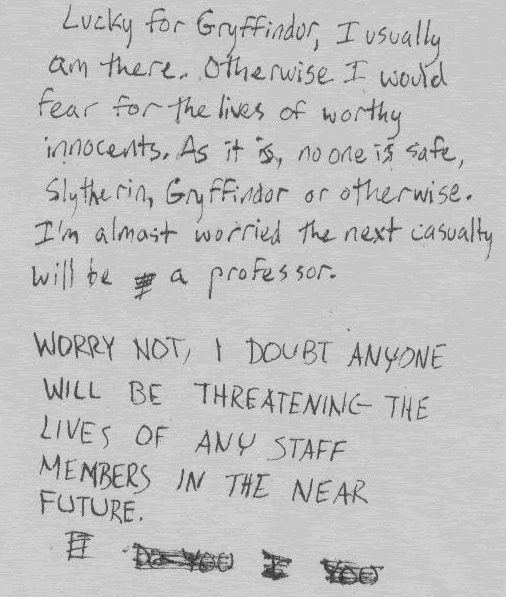 Lucky for Gryffindor, I usually
am there. Otherwise I would
fear for the lives of worthy
innocents. As it is, no one is safe,
Slytherin, Gryffindor or otherwise.
I'm almost worried the next casualty
will be a professor.
WORRY NOT, I DOUBT ANYONE
WILL BE THREATENING THE
LIVES OF ANY STAFF
MEMBERS IN THE NEAR
FUTURE.
DO YOU I YOU